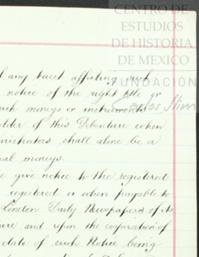 CENTRO DE
ESTUDIOS
DE HISTORIA
DE MEXICO
FUNDACIÓN
Carlos Slim
any trust affecting such
notice of the right title or
such moneys or instruments
holder of this Debenture when
ministrators shall alone be a
moneys.
give notice to the registered
registered or when payable to
London Daily Newspapers of its
and upon the expiration of
date of such Notice being